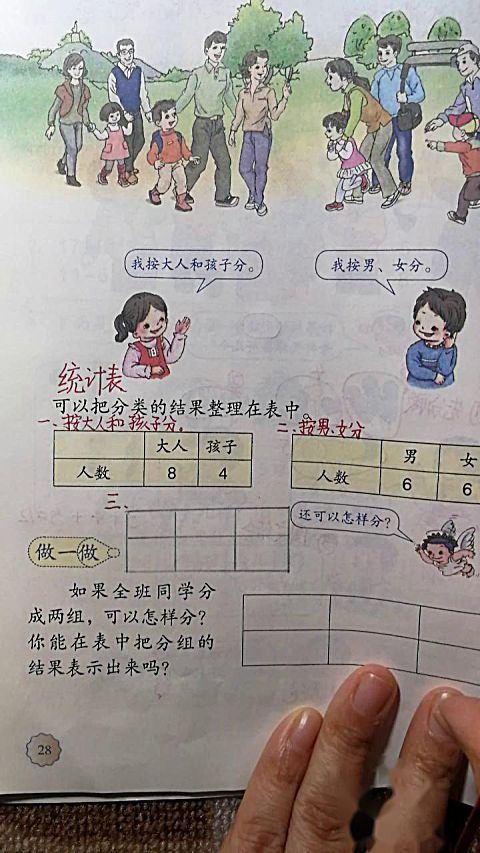 我按大人和孩子分。
我按男、女分。
统计表
可以把分类的结果整理在表中。
一、按大人和孩子分。
二、按男、女分
大人 孩子
人数 8 4
男 女
人数 6 6
三、
还可以怎样分？
做一做
如果全班同学分
成两组，可以怎样分？
你能在表中把分组的
结果表示出来吗？
28